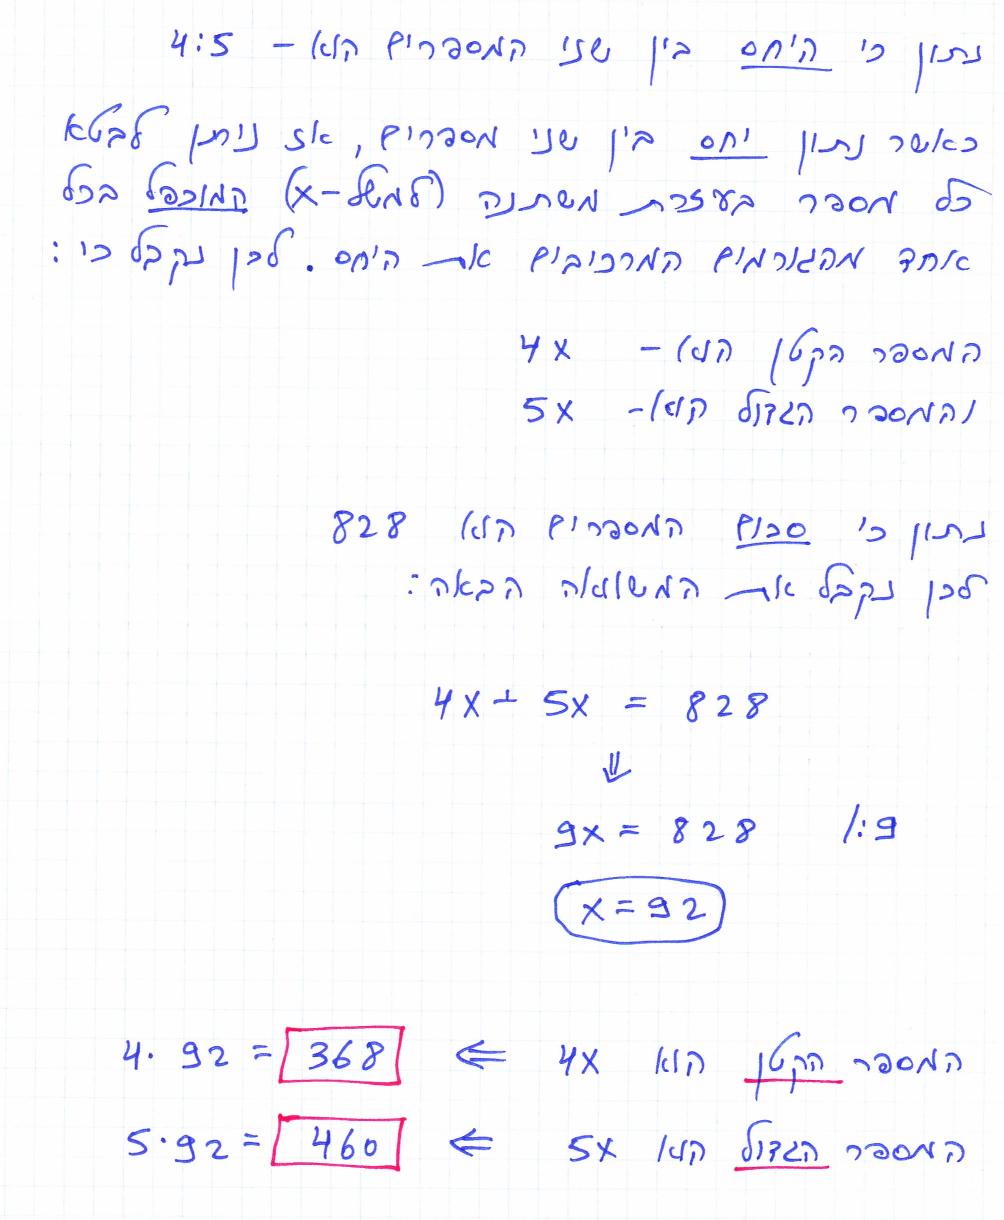 נתון כי היחס בין שני המספרים הוא - 4:5
כאשר נתון יחס בין שני מספרים, אז ניתן לבטא
כל מספר בעזרת משתנה (למשל-x) המוכפל בכל
אחד מהגורמים המרכיבים את היחס. לכן נקבל כי:
המספר הקטן הוא - 4x
והמספר הגדול הוא- 5x
נתון כי סכום המספרים הוא 828
לכן נקבל את המשוואה הבאה:
4x + 5x = 828
⇓
9x = 828 /:9
x = 92
המספר הקטן הוא 4x ⇐ 4· 92 = 368
המספר הגדול הוא 5x ⇐ 5·92 = 460